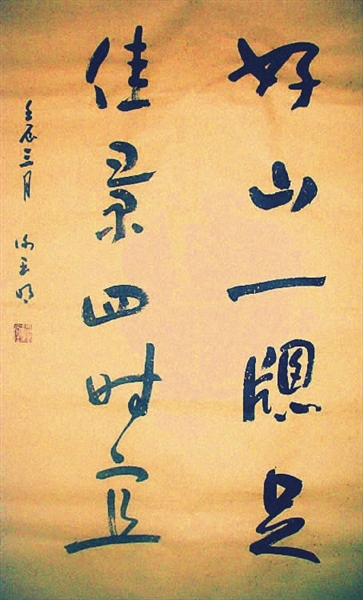 好山一牕足
佳景四时宜
壬辰三月